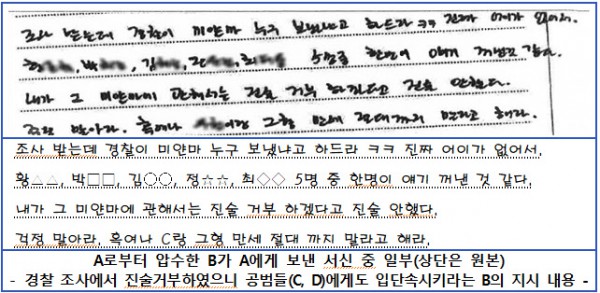 조사 받는데 경찰이 미얀마 누구 보냈냐고 하드라 ㅋㅋ 진짜 어이가 없어서.
5명중 한명이 얘기 꺼낸것 같다.
내가 그 미얀마에 관해서는 진술 거부 하겠다고 진술 안했다.
걱정 말아라. 혹여나 그형 만세 절대까지 말라고 해라.
조사 받는데 경찰이 미얀마 누구 보냈냐고 하드라 ㅋㅋ 진짜 어이가 없어서,
황△△, 박□□, 김○○, 정☆☆, 최◇◇ 5명 중 한명이 얘기 꺼낸 것 같다,
내가 그 미얀마에 관해서는 진술 거부 하겠다고 진술 안했다,
걱정 말아라, 혹여나 C랑 그형 만세 절대 까지 말라고 해라,
A로부터 압수한 B가 A에게 보낸 서신 중 일부(상단은 원본)
- 경찰 조사에서 진술거부하였으니 공범들(C, D)에게도 입단속시키라는 B의 지시 내용 -